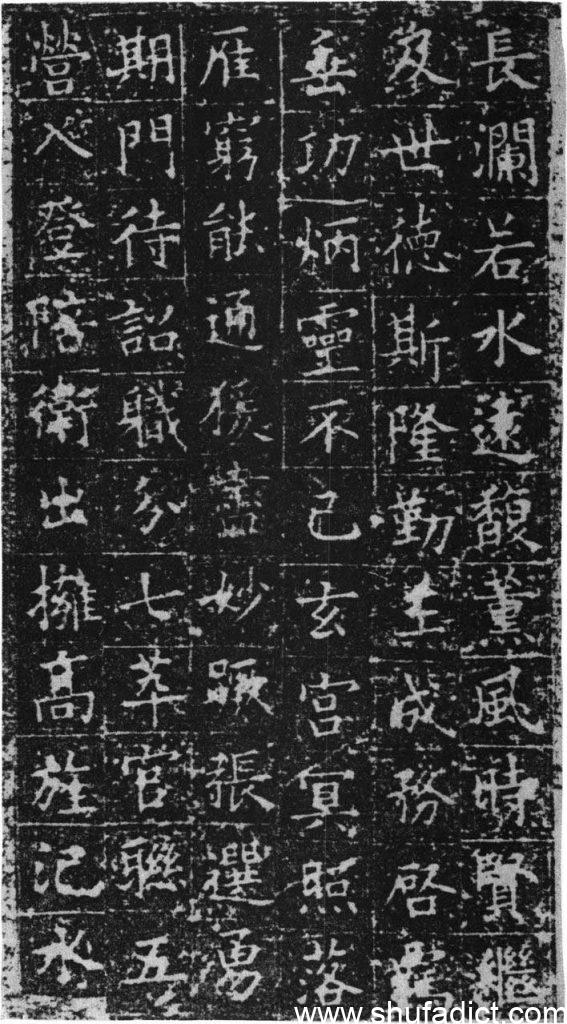 長瀾若水遠馥薰風時賢繼
世德斯隆勤王成務啓
垂功炳靈不已玄宮冥照落
雁窮能通猨盡妙蹶張選勇
期門待詔職分七萃官聯五
營入登陪衛出擁高旌汜水
www.shufadict.com